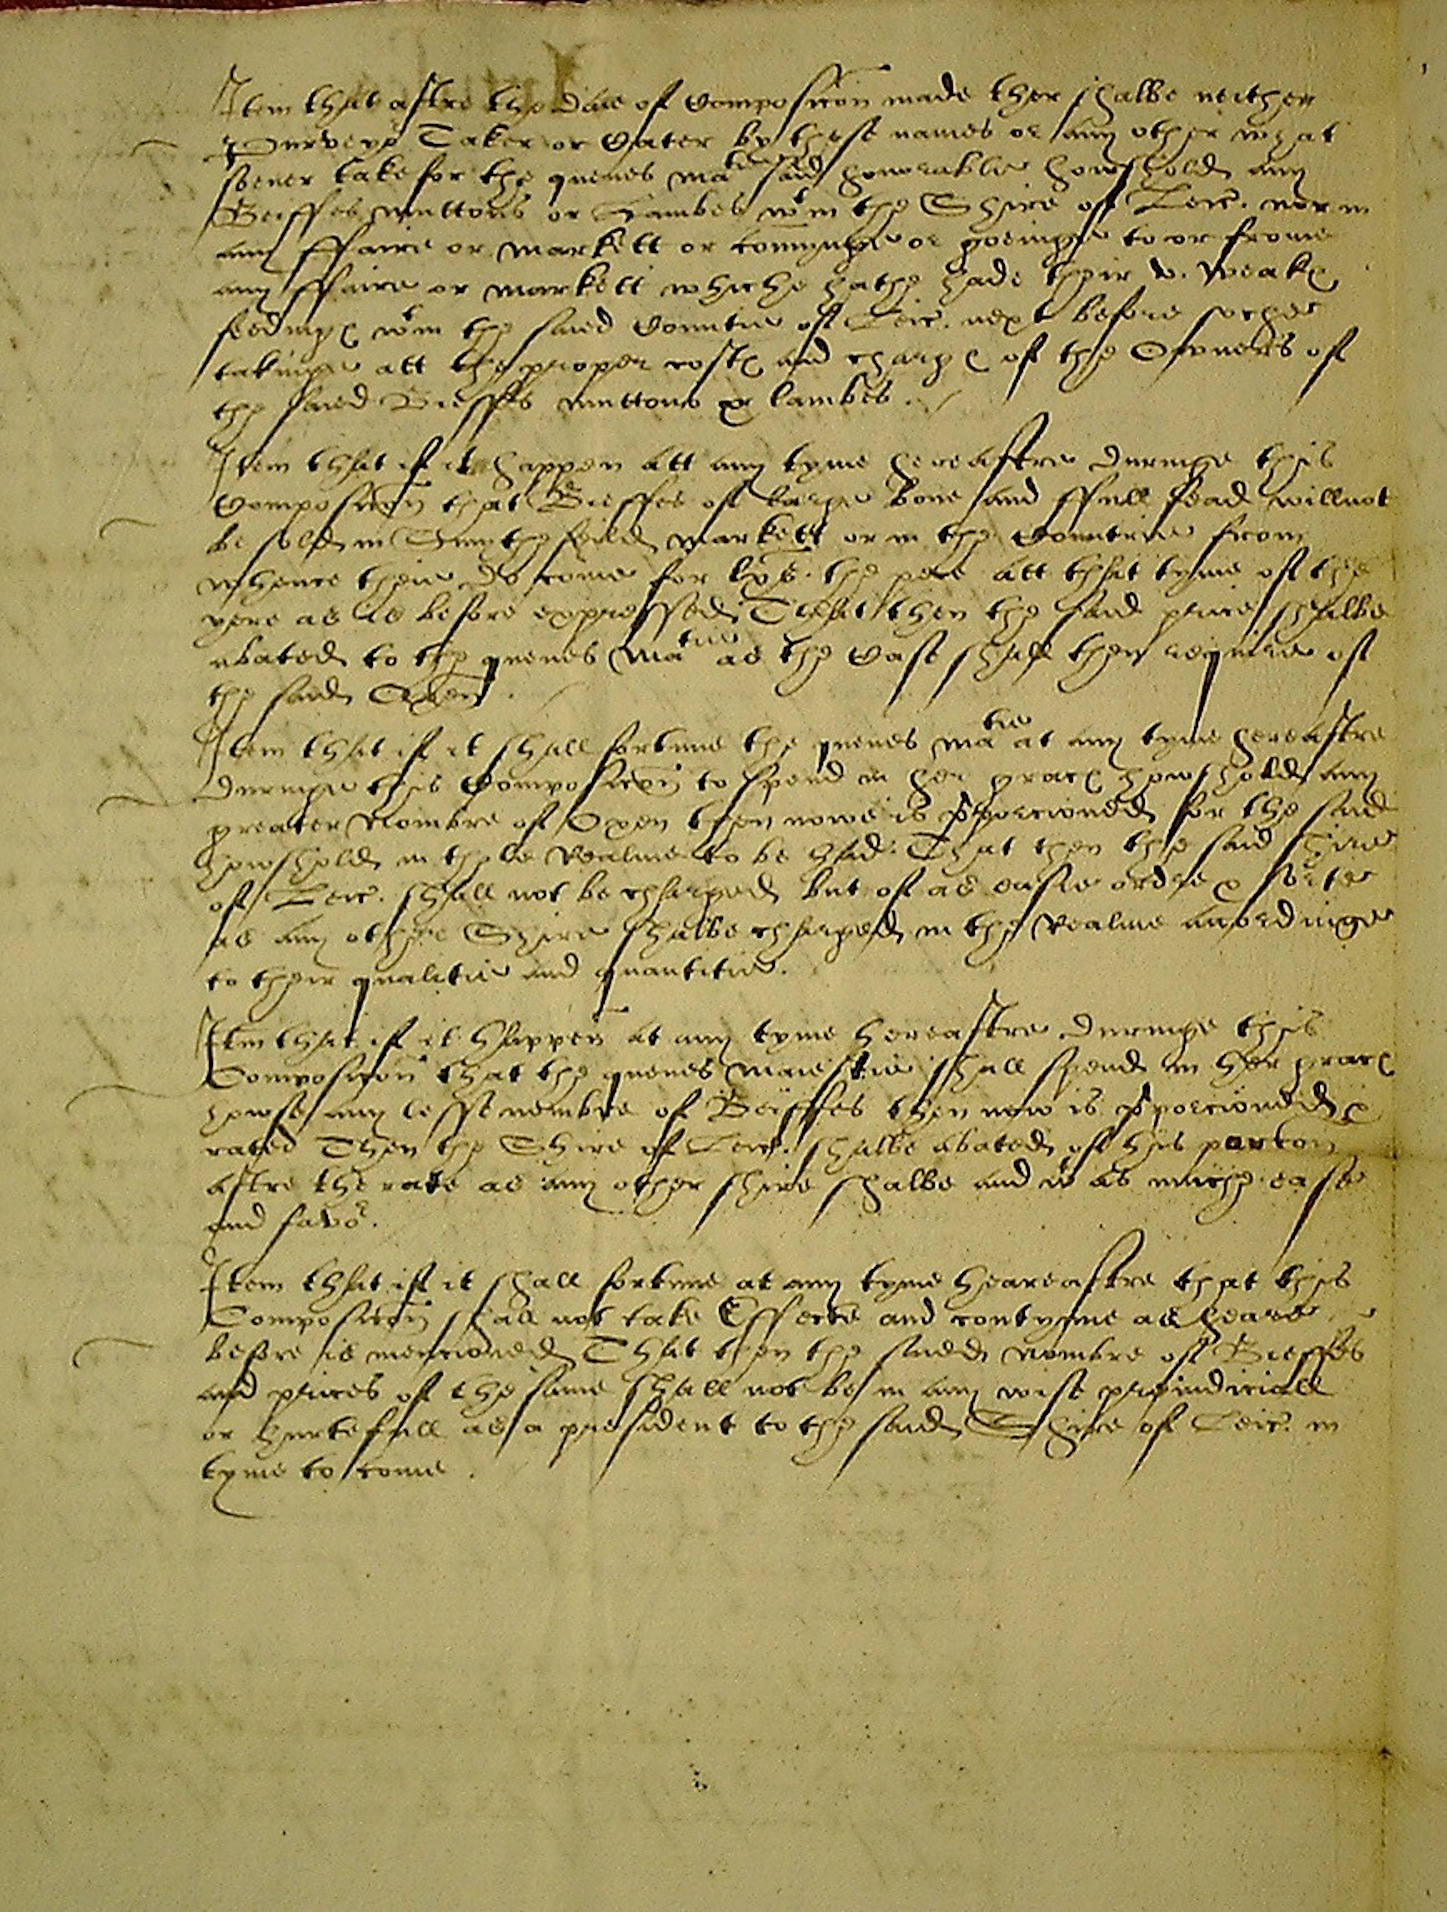 Item that aftre the date of Composicon made ther shalbe neither
Purveyo Taker or Cater by these names or any other what
soever take for the quenes matie said honorable howshold any
Beiffes muttons or Lambes wtin the Shire of Leic. nor in
any ffaire or markett or comynge or goeinge to or frome
any ffaire or markett whiche hathe hade their v. weakes
feedinges wtin the saied Countie of Leic. next before soche
takinge att the proper costes and charges of the Owners of
the saied Bieffes muttons or lambes.
Item that if it happen att any tyme hereaftre duringe this
Composicon that Bieffes of large bone and ffull fead will not
be sold in Smythefeild markett or in the Countrie from
whence theie do come for the pece att that tyme of the
yere as is before expressed That then the said price shalbe
abated to the quenes Matie as the Case shall then require of
the said Oxen.
Item that if it shall fortune the quenes matie at any tyme hereaftre
duringe this Composicon to spend in her graces howshold any
greater Nombre of Oxen then nowe is pporcioned for the said
howshold in thole Realme to be had. That then the said shire
of Leic. shall not be charged but of as easie ordre & sorte
as any other Shire shalbe charged in the Realme accordinge
to their qualitie and quantitie.
Itm that if it happen at any tyme hereaftre duringe this
Composicon that the quenes Maiestie shall spend in her graces
howse any lesse nombre of Beiffes then now is pporcioned &
rated Then the Shire of Leic. shalbe abated of his porcon
aftre the rate as any other shire shalbe and wt as muche ease
and favor.
Item that if it shall fortune at any tyme heareaftre that this
Composicon shall not take Effecte and contynue as heare
before is mencioned That then the saied Nombre of Bieffes
and prices of the same shall not be in any wise preiudiciall
or hurtefull as a president to the said Shire of Leic. in
tyme to come.